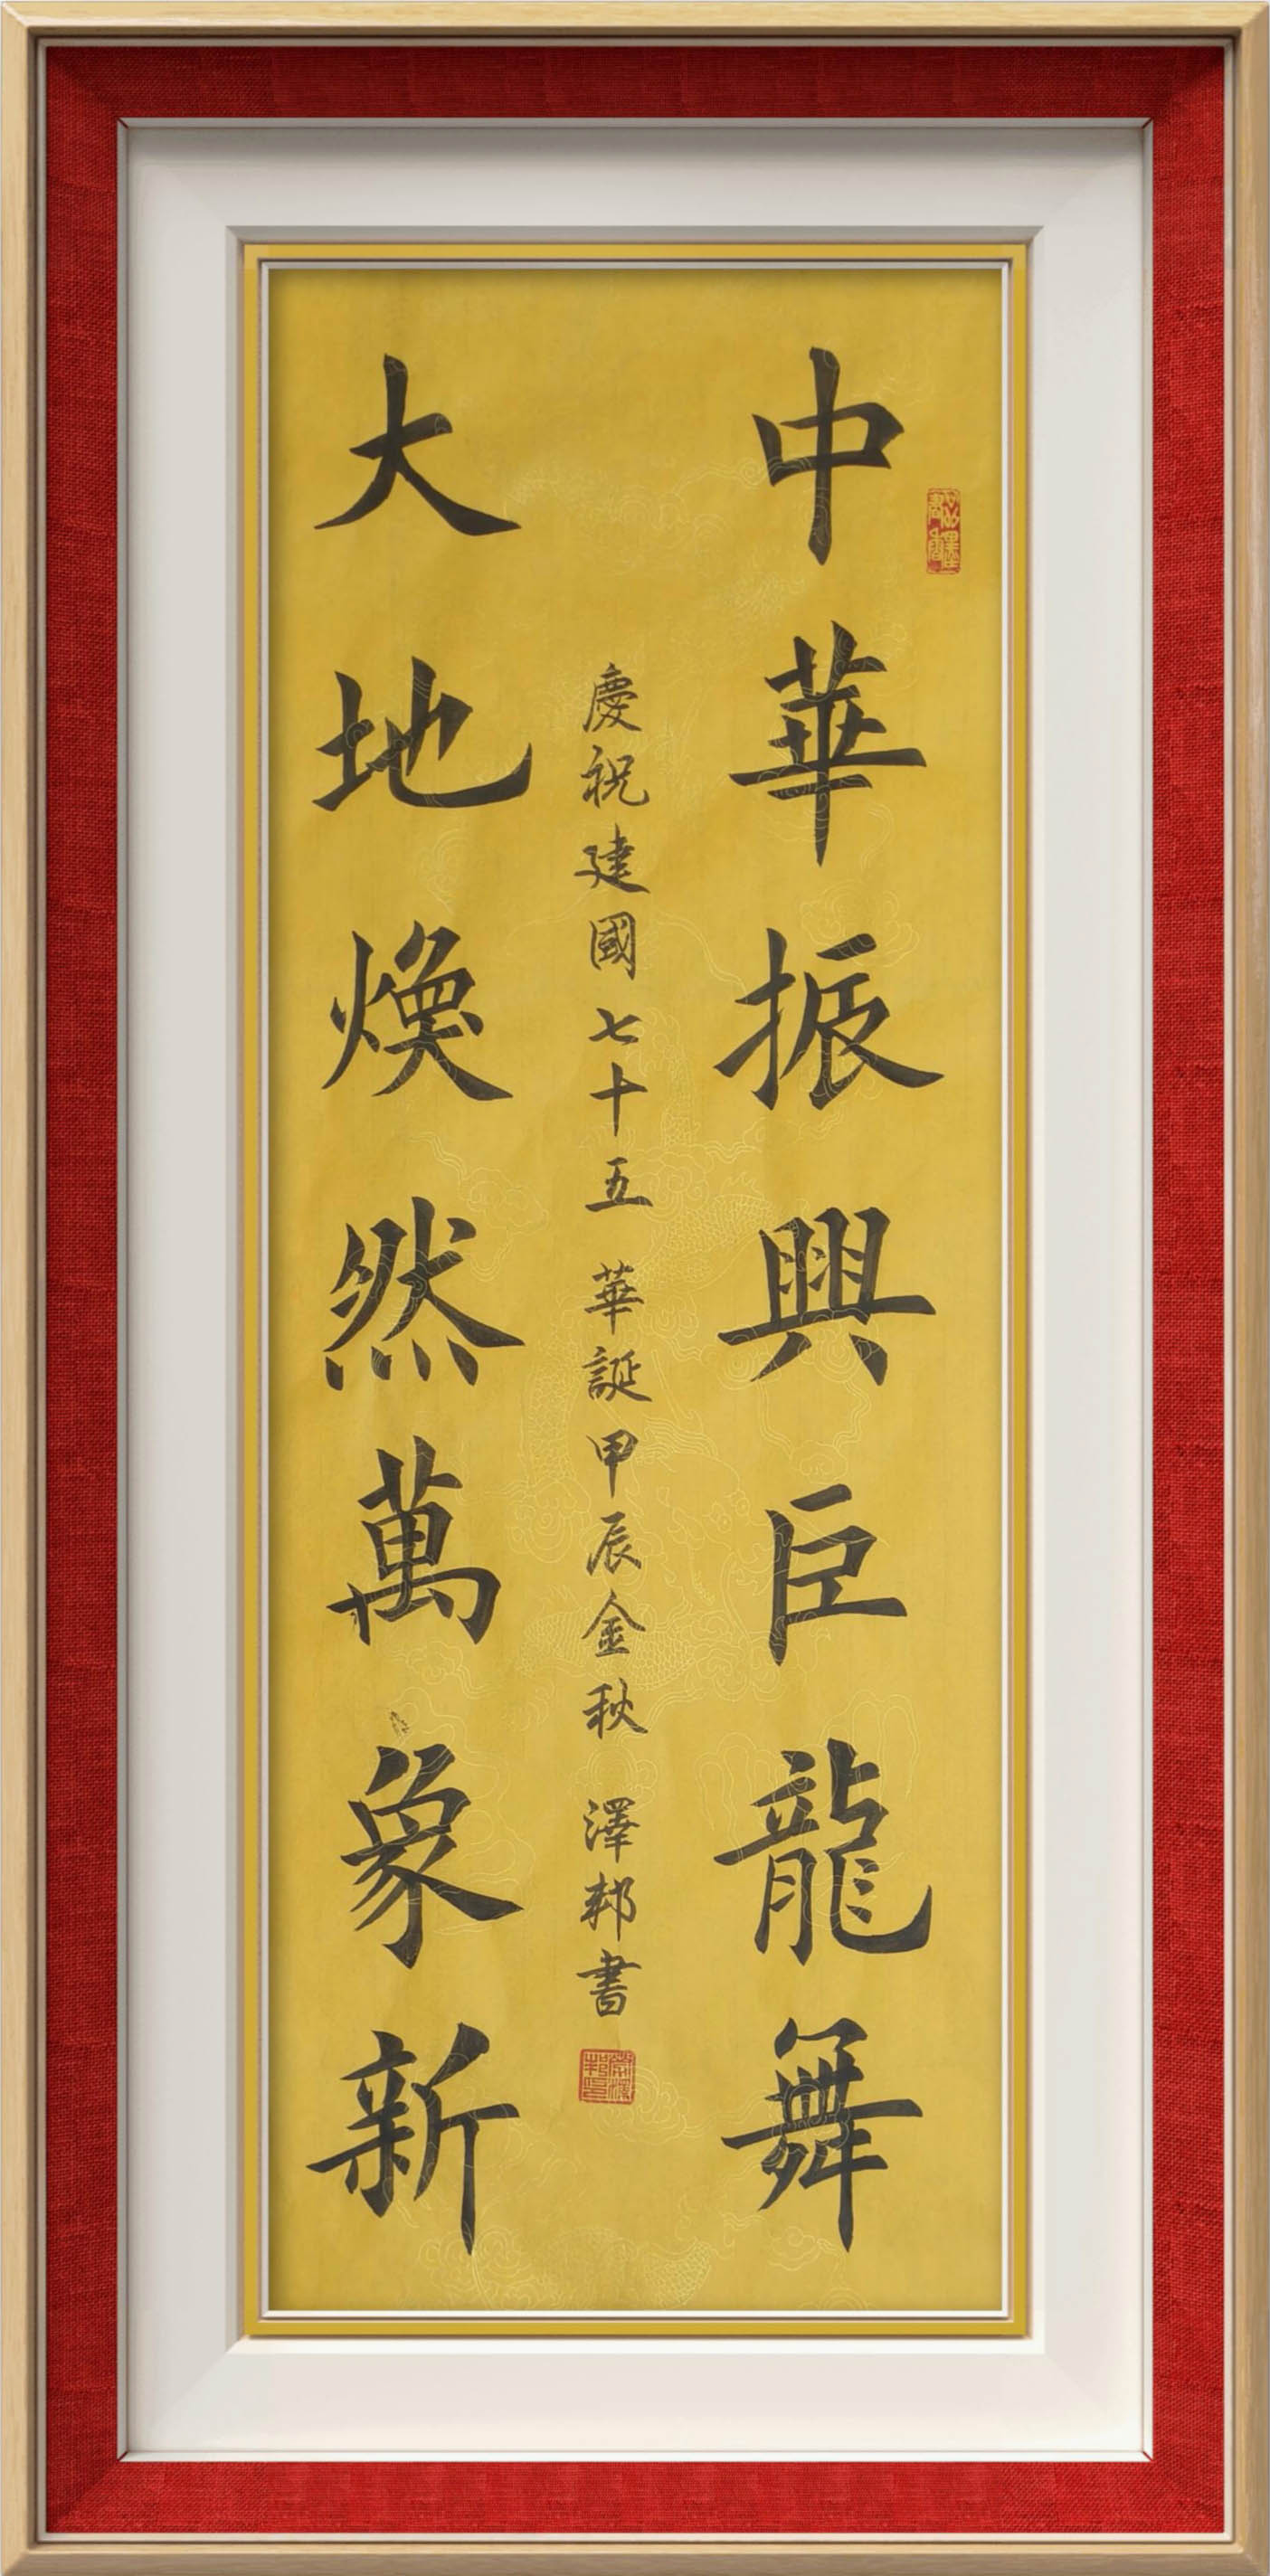 中華振興巨龍舞
慶祝建國七十五華誕甲辰金秋 澤邦書
大地煥然萬象新